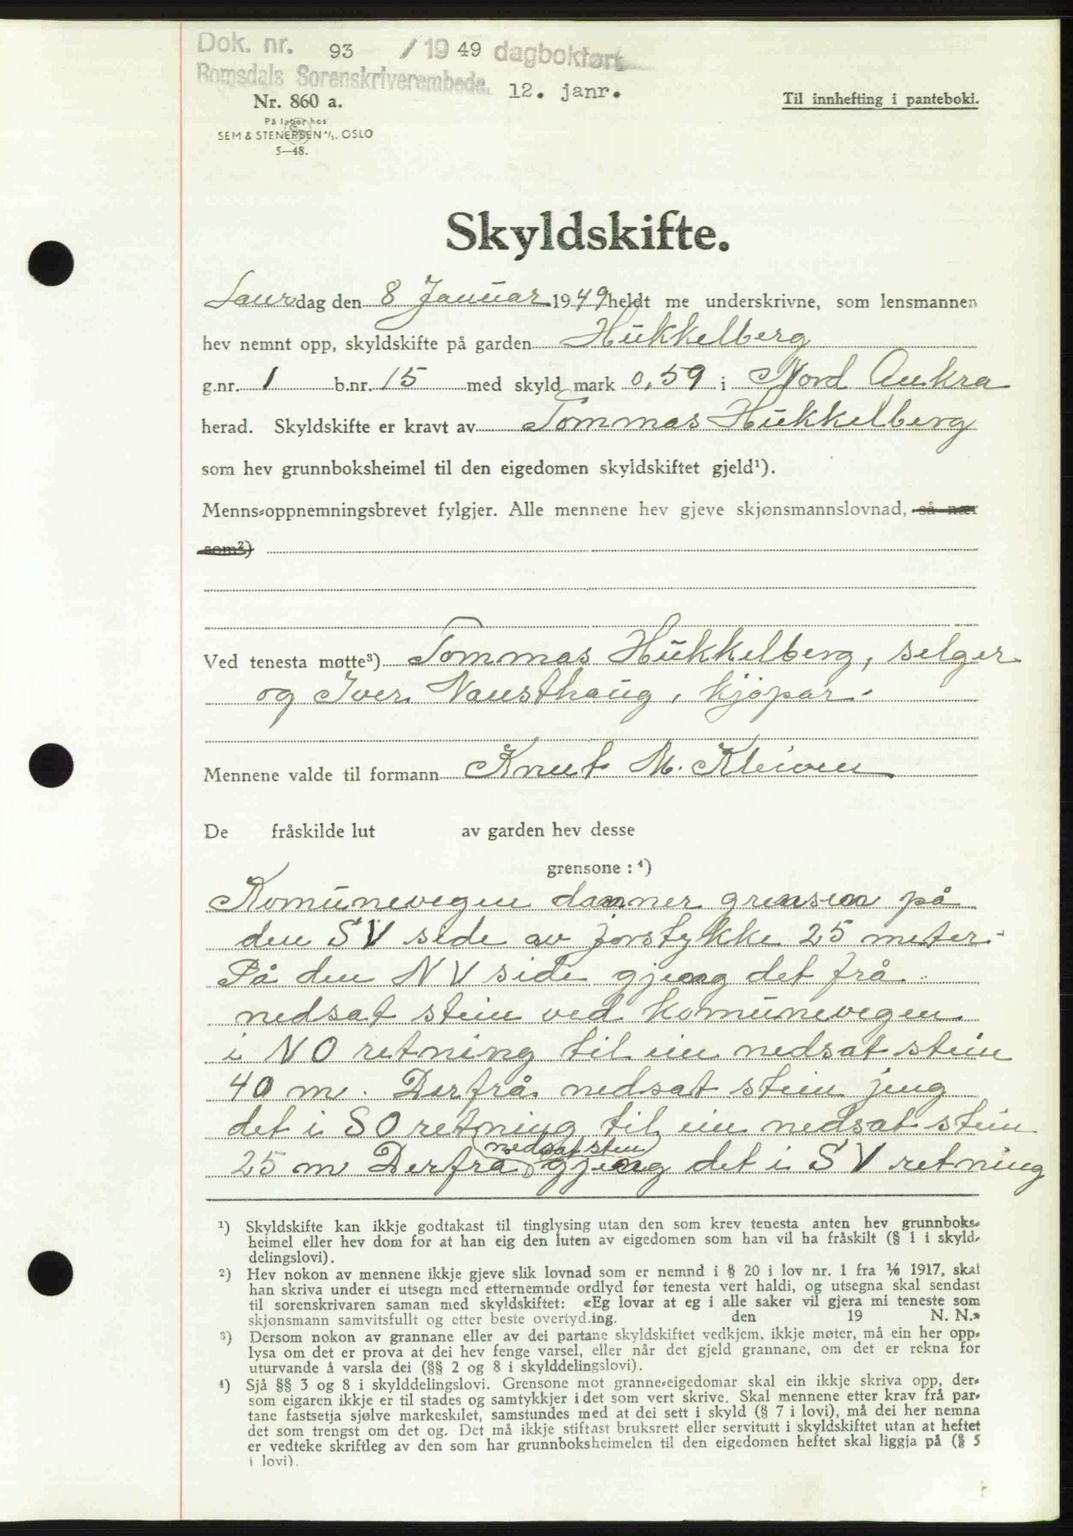 Dok. nr. 93 / 1949 dagbokført
Romsdals Sorenskriverembede. 12. janr.
Nr. 860 a.
Til innhefting i panteboki.
På lager hos
SEM & STENERSEN A/S, OSLO
5—48.
Skyldskifte.
Laurdag den 8 Januar 1949 heldt me underskrivne, som lensmannen
hev nemnt opp, skyldskifte på garden Hukkelberg
g.nr. 1 b.nr. 15 med skyld mark 0,59 i Nord Aukra
herad. Skyldskifte er kravt av Tommas Hukkelberg
som hev grunnboksheimel til den eigedomen skyldskiftet gjeld¹).
Menns-oppnemningsbrevet fylgjer. Alle mennene hev gjeve skjønsmannslovnad, så nær
som²)
Ved tenesta møtte³) Tommas Hukkelberg, selger
og Iver Nausthaug, kjöpar.
Mennene valde til formann Knut M. Kleiven
De fråskilde lut av garden hev desse
grensone: ⁴)
Komunevegen danner grensen på
den SV side av jorstykke 25 meter.
På den NV side gjeng det frå
nedsat stein ved komunevegen
i NO retning til ein nedsat stein
40 m. Derfrå nedsat stein jeng
det i SO retning til ein nedsat stein
nedsat stein
25 m Derfra gjeng det i SV retning
¹) Skyldskifte kan ikkje godtakast til tinglysing utan den som krev tenesta anten hev grunnboks-
heimel eller hev dom for at han eig den luten av eigedomen som han vil ha fråskilt (§ 1 i skyld-
delingslovi).
²) Hev nokon av mennene ikkje gjeve slik lovnad som er nemnd i § 20 i lov nr. 1 fra 1/6 1917, skal
han skriva under ei utsegn med etternemnde ordlyd før tenesta vert haldi, og utsegna skal sendast
til sorenskrivaren saman med skyldskiftet: «Eg lovar at eg i alle saker vil gjera mi teneste som
skjønsmann samvitsfullt og etter beste overtyd.ing. den 19 N. N.»
³) Dersom nokon av grannane eller av dei partane skyldskiftet vedkjem, ikkje møter, må ein her opp-
lysa om det er prova at dei hev fenge varsel, eller når det gjeld grannane, om det er rekna for
uturvande å varsla dei (§§ 2 og 8 i skylddelingslovi).
⁴) Sjå §§ 3 og 8 i skylddelingslovi. Grensone mot granne-eigedomar skal ein ikkje skriva opp, der-
som eigaren ikkje er til stades og samtykkjer i det som vert skrive. Skal mennene etter krav frå par-
tane fastsetja sjølve markeskilet, samstundes med at dei sett i skyld (§ 7 i lovi), må dei her nemna
det som trengst om det og. Det må ikkje stiftast bruksrett eller servitutt i skyldskiftet utan at heftet
er vedteke skriftleg av den som har grunnboksheimelen til den eigedomen heftet skal liggja på (§ 5
i lovi).